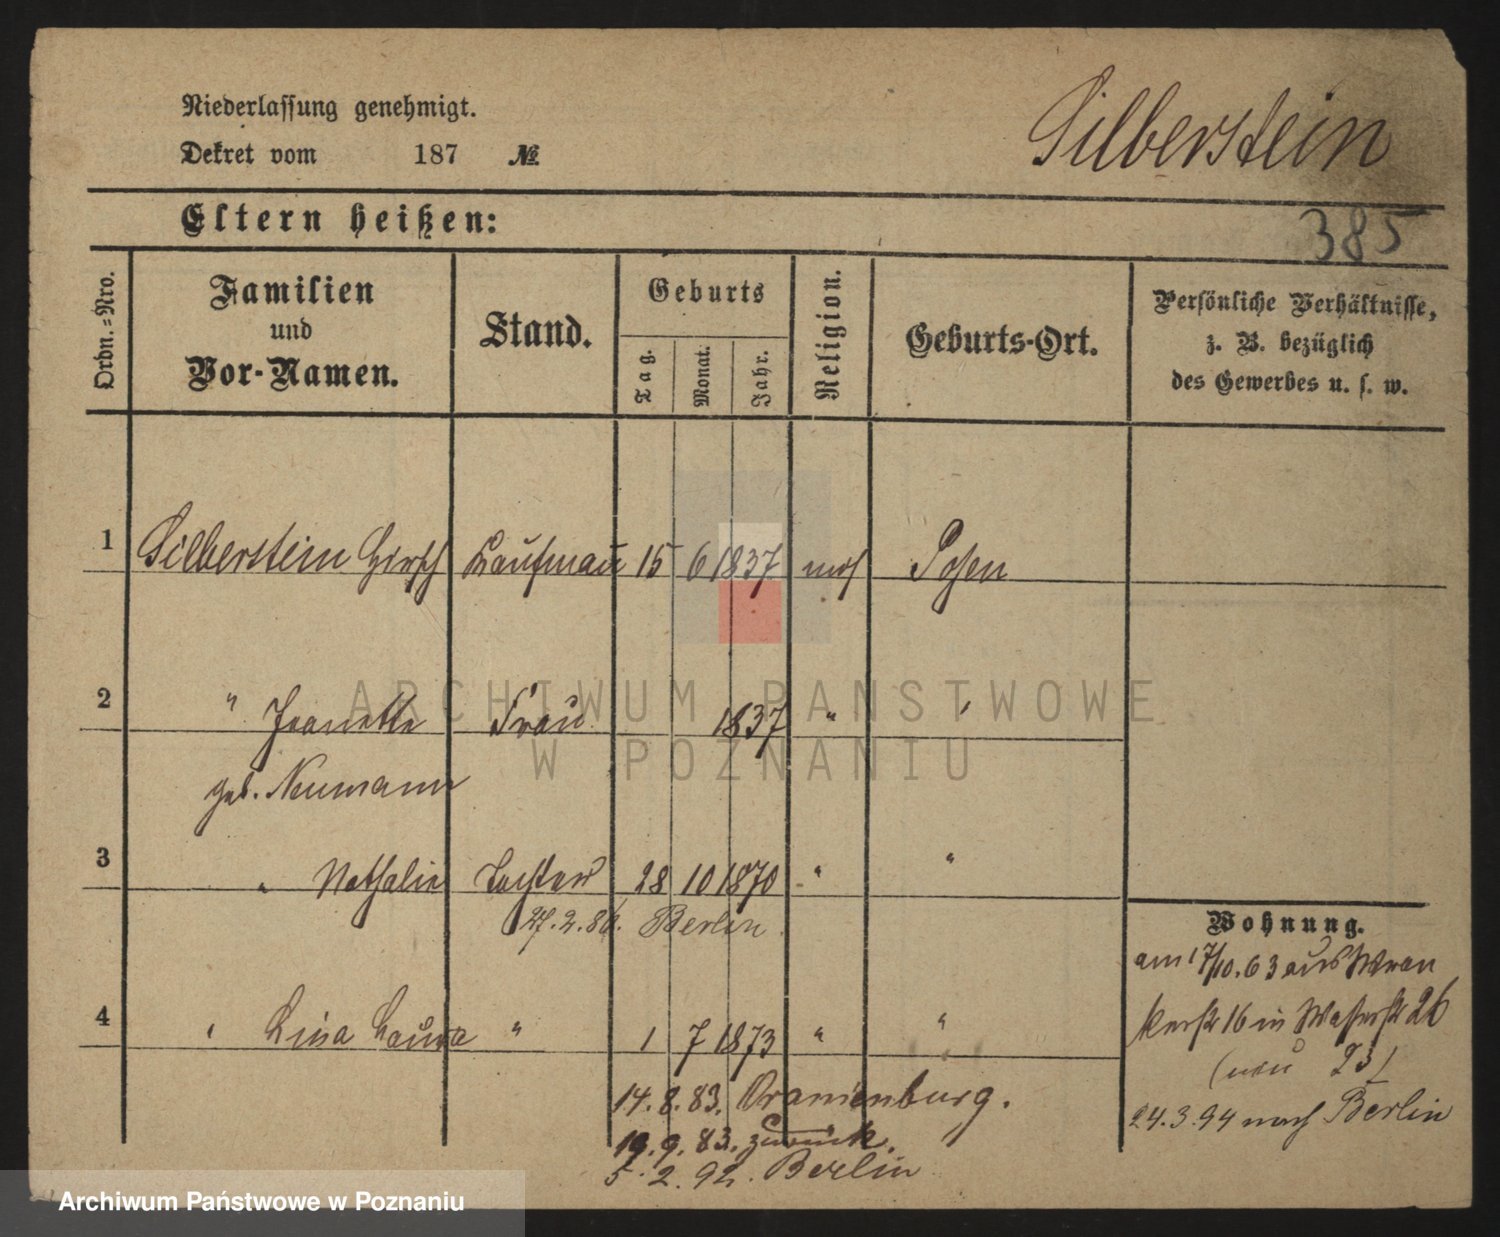 Niederlassung genehmigt.
Dekret vom 187 №
Silberstein
385
Eltern heißen:
Ordn.-Nro.
Familien
und
Vor-Namen.
Stand.
Geburts
Tag.
Monat.
Jahr.
Religion.
Geburts-Ort.
Persönliche Verhältnisse,
z. B. bezüglich
des Gewerbes u. s. w.
1 Silberstein Hirsch Kaufmann 15 6 1837 mos Posen
2 " Jeanette Frau 1837 " "
geb. Neumann
3 " Nathalie Tochter 28 10 1870 " "
27.2.86. Berlin.
4 " Lina Laura " 1 7 1873 " "
14.8.83. Oranienburg.
19.9.83. zurück.
5.2.92. Berlin
Wohnung.
am 17/10.63 aus Wron
kerstr 16 in Wasserstr 26
(neu 23)
24.3.94 nach Berlin
ARCHIWUM PAŃSTWOWE
W POZNANIU
Archiwum Państwowe w Poznaniu